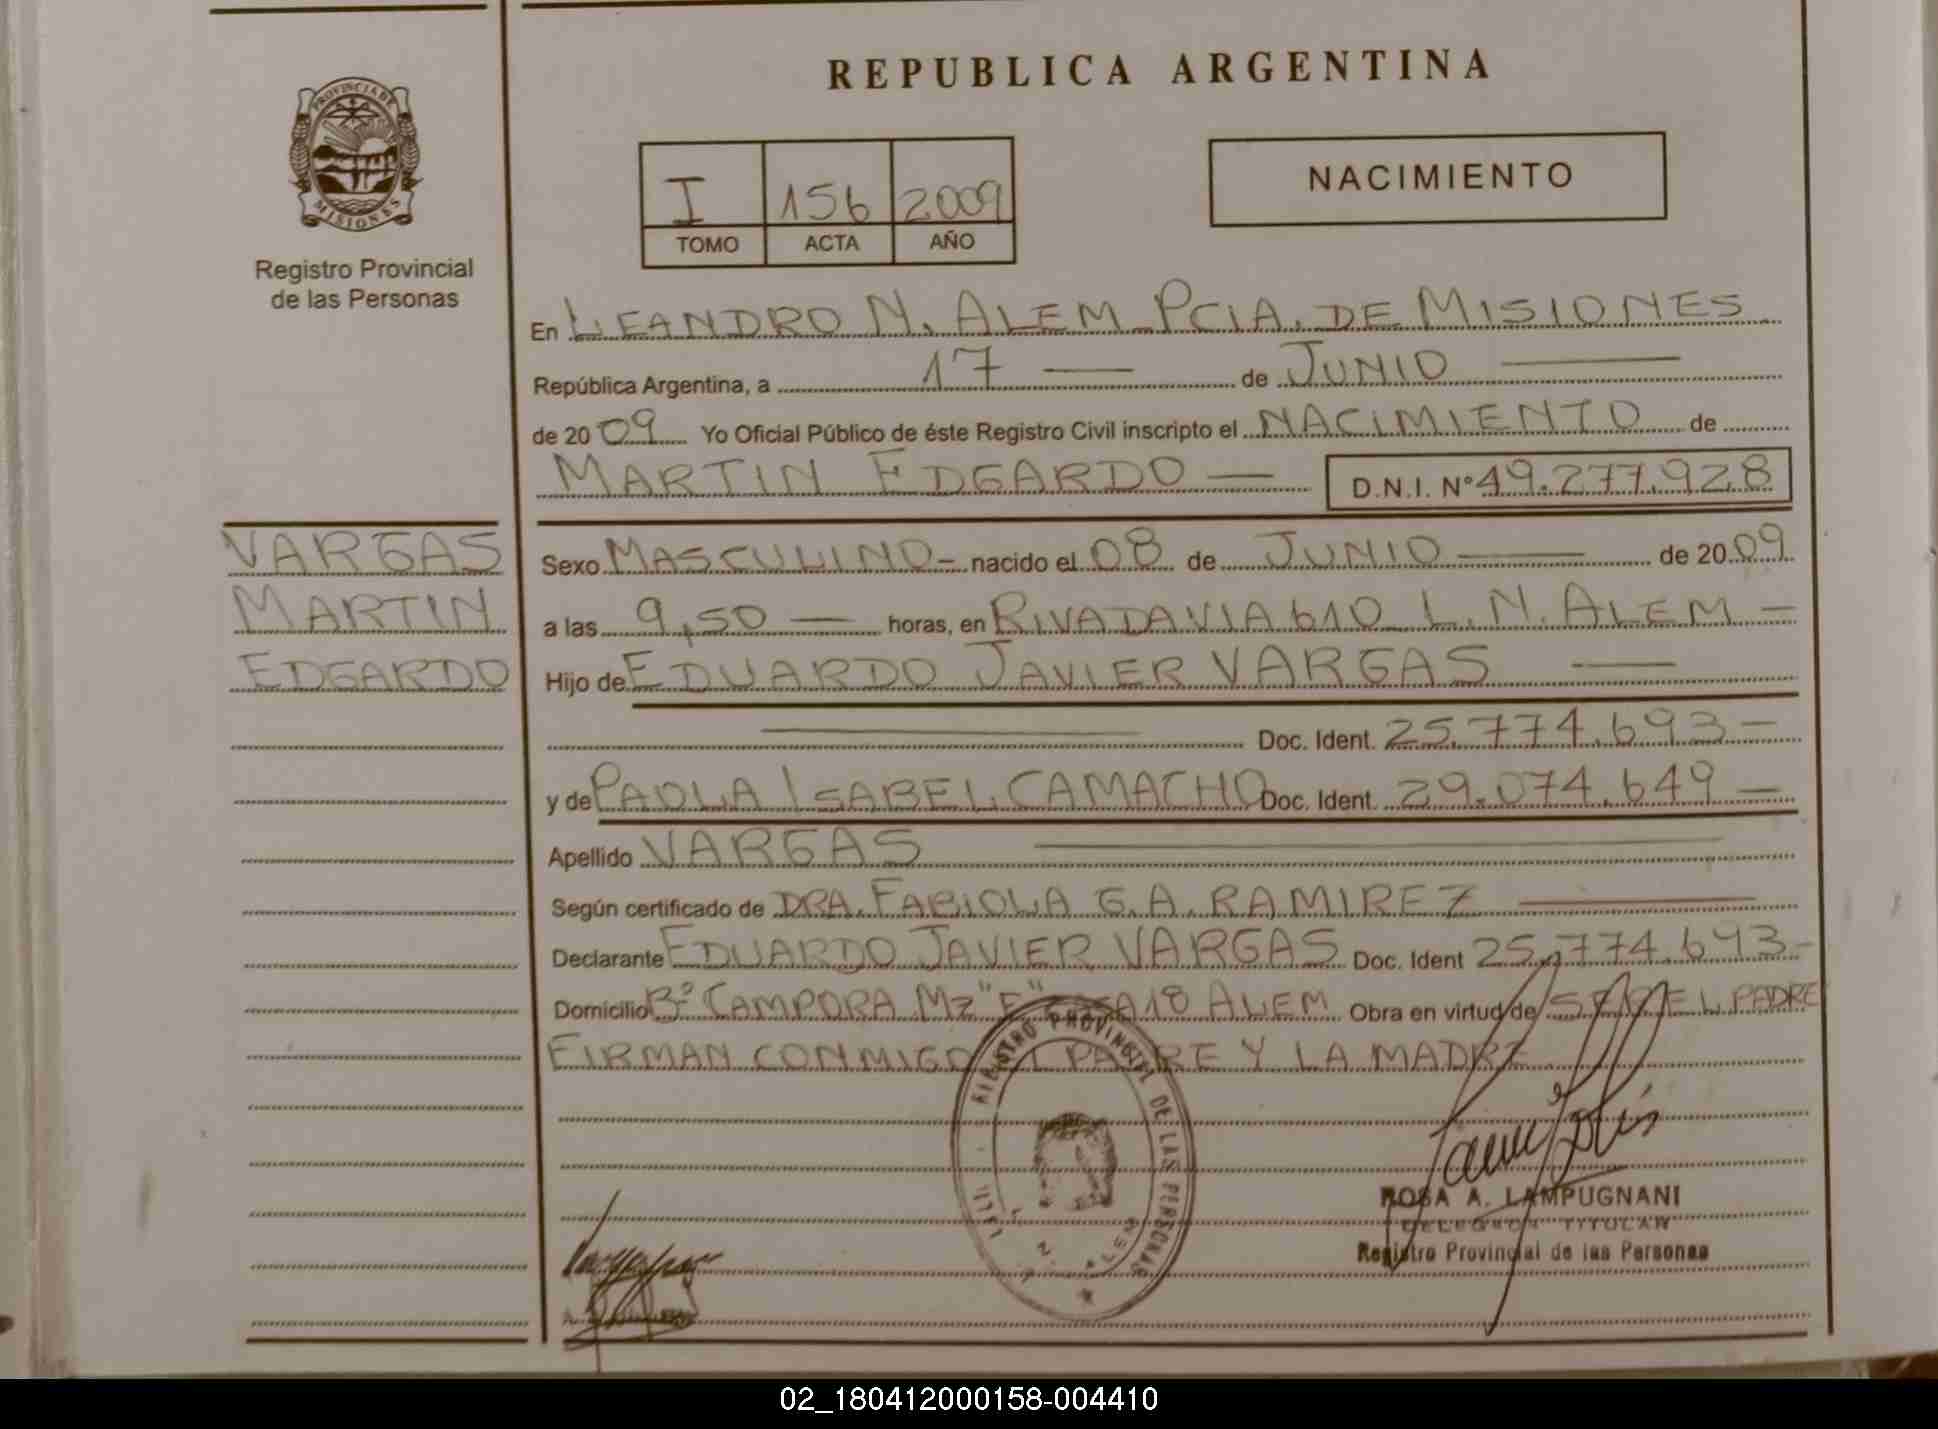 PROVINCIA DE
MISIONES
Registro Provincial
de las Personas
VARGAS
MARTIN
EDGARDO
REPUBLICA ARGENTINA
I 156 2009
TOMO ACTA AÑO
NACIMIENTO
En LEANDRO N. ALEM PCIA. DE MISIONES
República Argentina, a 17 — de JUNIO —
de 2009 Yo Oficial Público de éste Registro Civil inscripto el NACIMIENTO de
MARTIN EDGARDO — D.N.I. N° 49.277.928
Sexo MASCULINO - nacido el 08 de JUNIO — de 2009
a las 9,50 — horas, en RIVADAVIA 610 L.N. ALEM —
Hijo de EDUARDO JAVIER VARGAS —
— Doc. Ident. 25.774.693 —
y de PAOLA ISABEL CAMACHO Doc. Ident. 29.074.649 —
Apellido VARGAS —
Según certificado de DRA. FABIOLA G.A. RAMIREZ —
Declarante EDUARDO JAVIER VARGAS Doc. Ident 25.774.693 -
Domicilio B° CAMPORA Mz "E" 18 ALEM Obra en virtud de SER EL PADRE
FIRMAN CONMIGO EL PADRE Y LA MADRE
REGISTRO PROVINCIAL DE LAS PERSONAS
ROSA A. LAMPUGNANI
DELEGADA TITULAR
Registro Provincial de las Personas
02_180412000158-004410